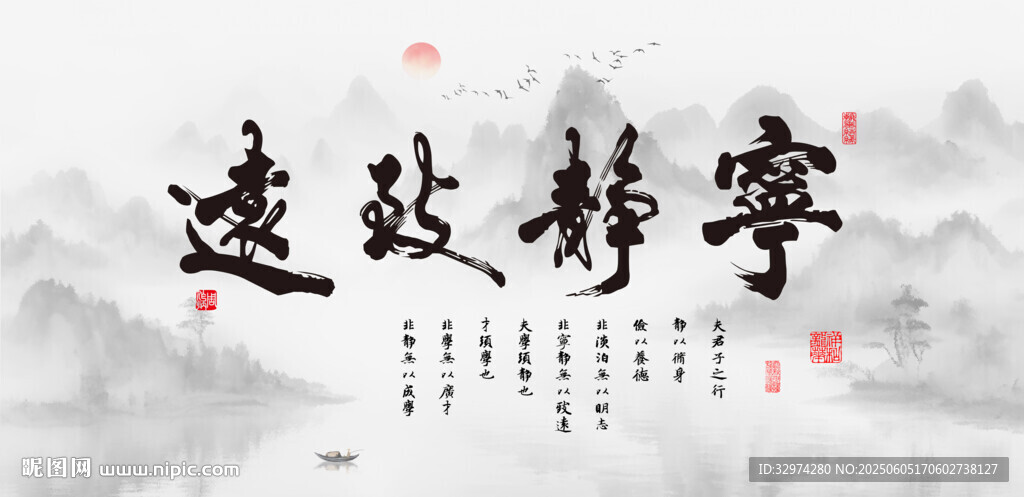 寧靜致遠
夫君子之行
靜以脩身
儉以養德
非淡泊無以明志
非寧靜無以致遠
夫學須靜也
才須學也
非學無以廣才
非靜無以成學
昵图网 www.nipic.com
ID:32974280 NO:20250605170602738127